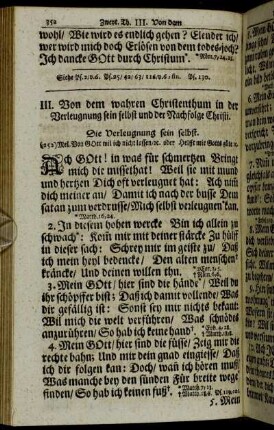 352 Zweyt. Th. III. Von dem
wohl/ Wie wird es endlich gehen? Elender ich/
wer wird mich doch Erlösen von dem todes-joch?
Ich dancke GOtt durch Christum. * *Rom. 7,24.25.
Siehe Ps. 2. v. 6. Ps. 25/ 42/ 63/ 116. v. 6. sq. Ps. 130.
III. Von dem wahren Christenthum in der
Verleugnung sein selbst und der Nachfolge Christi.
Die Verleugnung sein selbst.
(252) Mel. Von GOtt wil ich nicht lassen
ACh GOtt! in was für schmertzen Bringt
mich die missethat! Weil sie mit mund
und hertzen Dich oft verleugnet hat: Ach nim
dich meiner an/ Damit ich nach der busse Dem
satan zum verdrusse/ Mich selbst verleugnen kan.
* Matth. 16,24.
2. In diesem hohen wercke Bin ich allein zu
schwach: Kom mir mit deiner stärcke Zu hülff
in dieser sach! Schrey mir im geiste zu/ Daß
ich mein heyl bedencke/ Den alten menschen
kräncke/ Und deinen willen thu.
3. Mein GOtt/ hier sind die hände/ Weil du
ihr schöpffer bist: Daß ich damit vollende/ Was
dir gefällig ist: Sonst sey mir nichts bekant
Wil mich die welt verführen/ Was schnödes
anzurühren/ So hab ich keine hand.
4. Mein GOtt/ hier sind die füsse/ Zeig mir die
rechte bahn; Und mir dein gnad eingiesse/ Daß
ich dir folgen kan: Doch/ wañ ich hören muß/
Was manche bey den sünden Für breite wege
finden/ So hab ich keinen fuß.
5. Mein